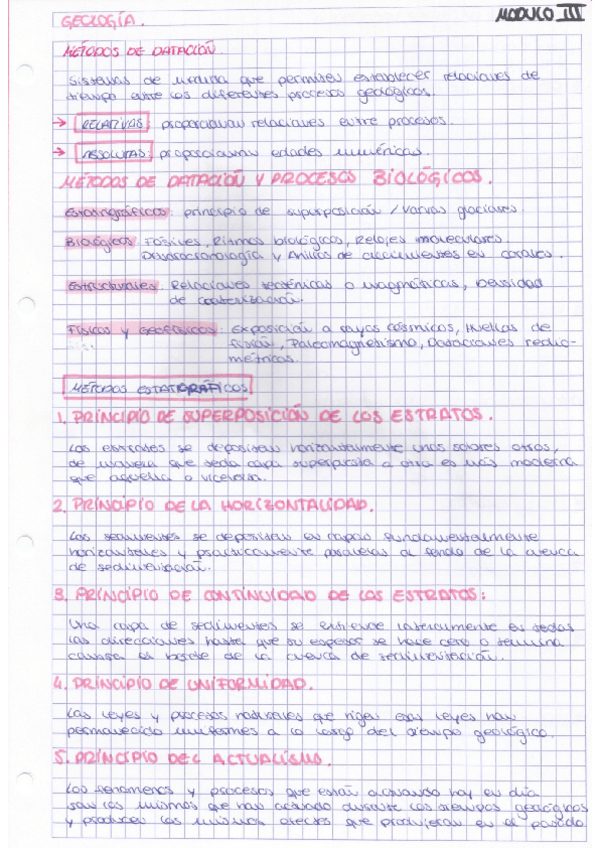 GEOLOGÍA.
MODULO III
MÉTODOS DE DATACIÓN
Sistemas de medida que permiten establecer relaciones de
tiempo entre los diferentes procesos geológicos.
→ RELATIVAS: proporcionan relaciones entre procesos.
→ ABSOLUTAS: proporcionan edades numéricas.
MÉTODOS DE DATACIÓN Y PROCESOS BIOLÓGICOS.
Estratigráficos: principio de superposición / Varvas glaciares.
Biológicos: Fósiles, Ritmos biológicos, Relojes moleculares
Dendrocronología y Anillos de crecimientos en corales.
Estructurales: Relaciones tectónicas o magmáticas, Densidad
de craterización.
Físicos y Geológicos: Exposición a rayos cósmicos, Huellas de
fisión, Paleomagnetismo, Dataciones radio-
métricas.
MÉTODOS ESTATIGRÁFICOS
1. PRINCIPIO DE SUPERPOSICIÓN DE LOS ESTRATOS.
Los estratos se depositan horizontalmente unos sobre otros,
de manera que toda capa superpuesta a otra es más moderna
que aquella o viceversa.
2. PRINCIPIO DE LA HORIZONTALIDAD.
Los sedimentos se depositan en capas fundamentalmente
horizontales y practicamente paralelas al fondo de la cuenca
de sedimentación.
3. PRINCIPIO DE CONTINUIDAD DE LOS ESTRATOS:
Una capa de sedimentos se extiende lateralmente en todas
las direcciones hasta que su espesor se hace cero o termina
contra el borde de la cuenca de sedimentación.
4. PRINCIPIO DE UNIFORMIDAD.
Las leyes y procesos naturales que rigen esas leyes han
permanecido uniformes a lo largo del tiempo geológico.
5. PRINCIPIO DEL ACTUALISMO.
Los fenómenos y procesos que están actuando hoy en día
son los mismos que han actuado durante los tiempos geológicos
y producen los mismos efectos que produjeron en el pasado